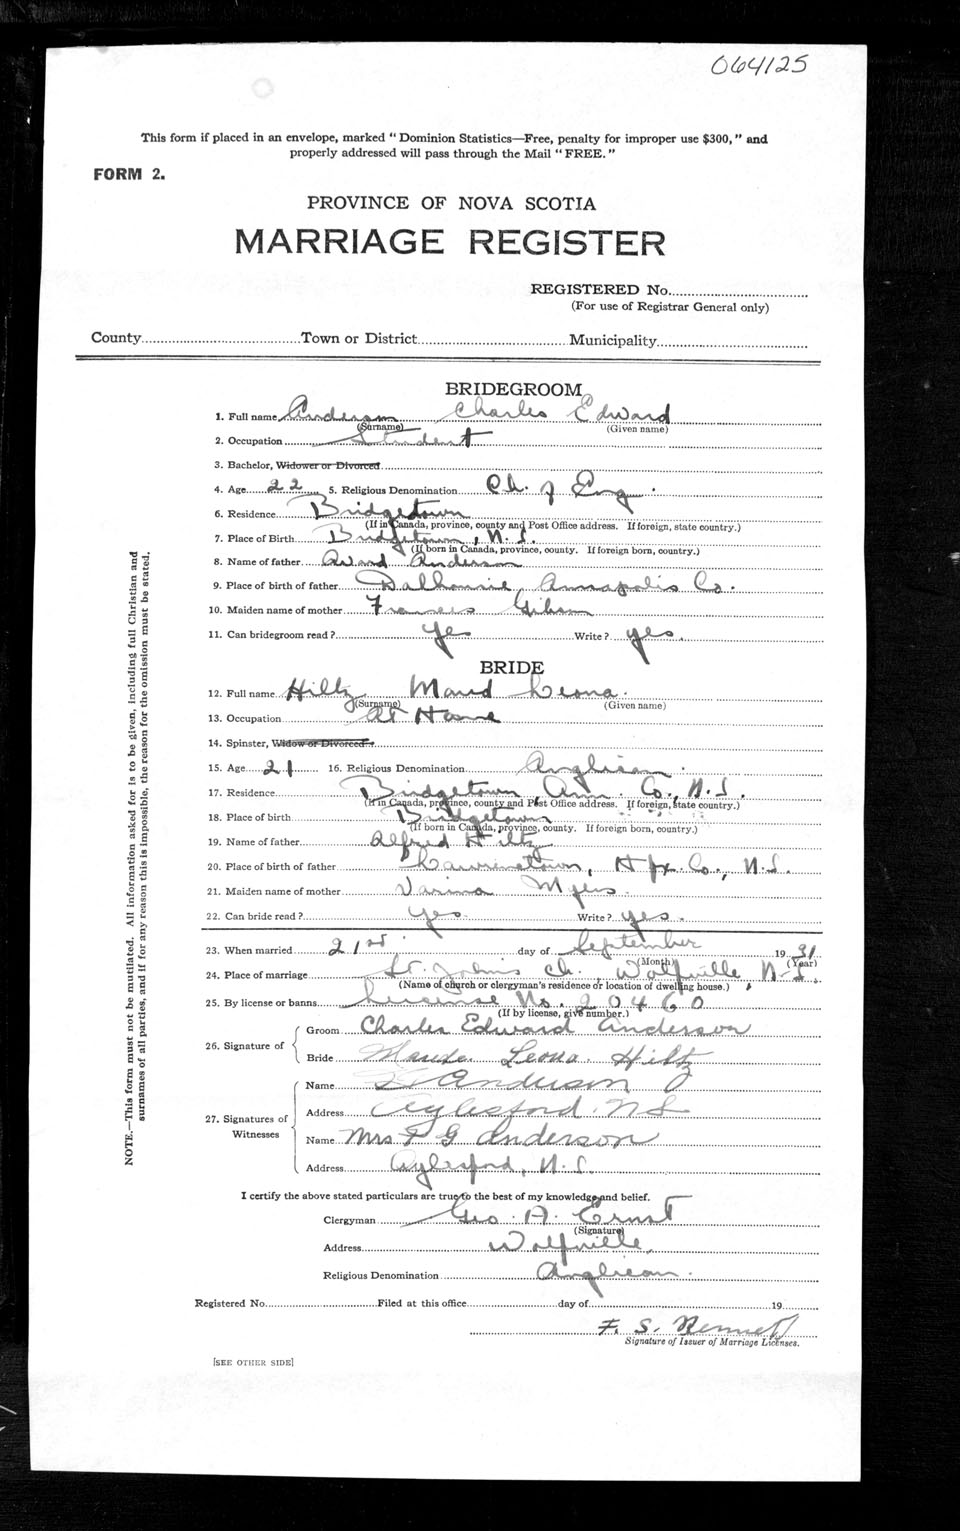 064125
This form if placed in an envelope, marked "Dominion Statistics—Free, penalty for improper use $300," and
properly addressed will pass through the Mail "FREE."
FORM 2.
PROVINCE OF NOVA SCOTIA
MARRIAGE REGISTER
REGISTERED No.
(For use of Registrar General only)
County Town or District Municipality
BRIDEGROOM
1. Full name Anderson Charles Edward
(Surname) (Given name)
2. Occupation Student
3. Bachelor, Widower or Divorced
4. Age 22 5. Religious Denomination Ch. of Eng.
6. Residence Bridgetown
(If in Canada, province, county and Post Office address. If foreign, state country.)
7. Place of Birth Bridgetown, N.S.
(If born in Canada, province, county. If foreign born, country.)
8. Name of father Avard Anderson
9. Place of birth of father Dalhousie, Annapolis Co.
10. Maiden name of mother Frances Gibson
11. Can bridegroom read? yes Write? yes.
BRIDE
12. Full name Hiltz Maud Leona.
(Surname) (Given name)
13. Occupation At Home
14. Spinster, Widow or Divorced
15. Age 21 16. Religious Denomination Anglican.
17. Residence Bridgetown Ann. Co., N.S.
(If in Canada, province, county and Post Office address. If foreign, state country.)
18. Place of birth Bridgetown
(If born in Canada, province, county. If foreign born, country.)
19. Name of father Alfred Hiltz
20. Place of birth of father Lawrencetown, Hfx. Co., N.S.
21. Maiden name of mother Myers
22. Can bride read? yes. Write? yes.
23. When married 21st. day of September 1931
(Month) (Year)
24. Place of marriage St. John's Ch., Wolfville N.S.
(Name of church or clergyman's residence or location of dwelling house.)
25. By license or banns License No. 20460
(If by license, give number.)
26. Signature of
Groom Charles Edward Anderson
Bride Maude Leona Hiltz
27. Signatures of
Witnesses
Name Anderson
Address Aylesford. NS
Name Mrs F G Anderson
Address Aylesford, N.S.
I certify the above stated particulars are true to the best of my knowledge and belief.
Clergyman Geo. A. Ernst
(Signature)
Address Wolfville,
Religious Denomination Anglican.
Registered No. Filed at this office day of 19
F. S.
Signature of Issuer of Marriage Licenses.
[SEE OTHER SIDE]
NOTE.—This form must not be mutilated. All information asked for is to be given, including full Christian and
surnames of all parties, and if for any reason this is impossible, the reason for the omission must be stated.